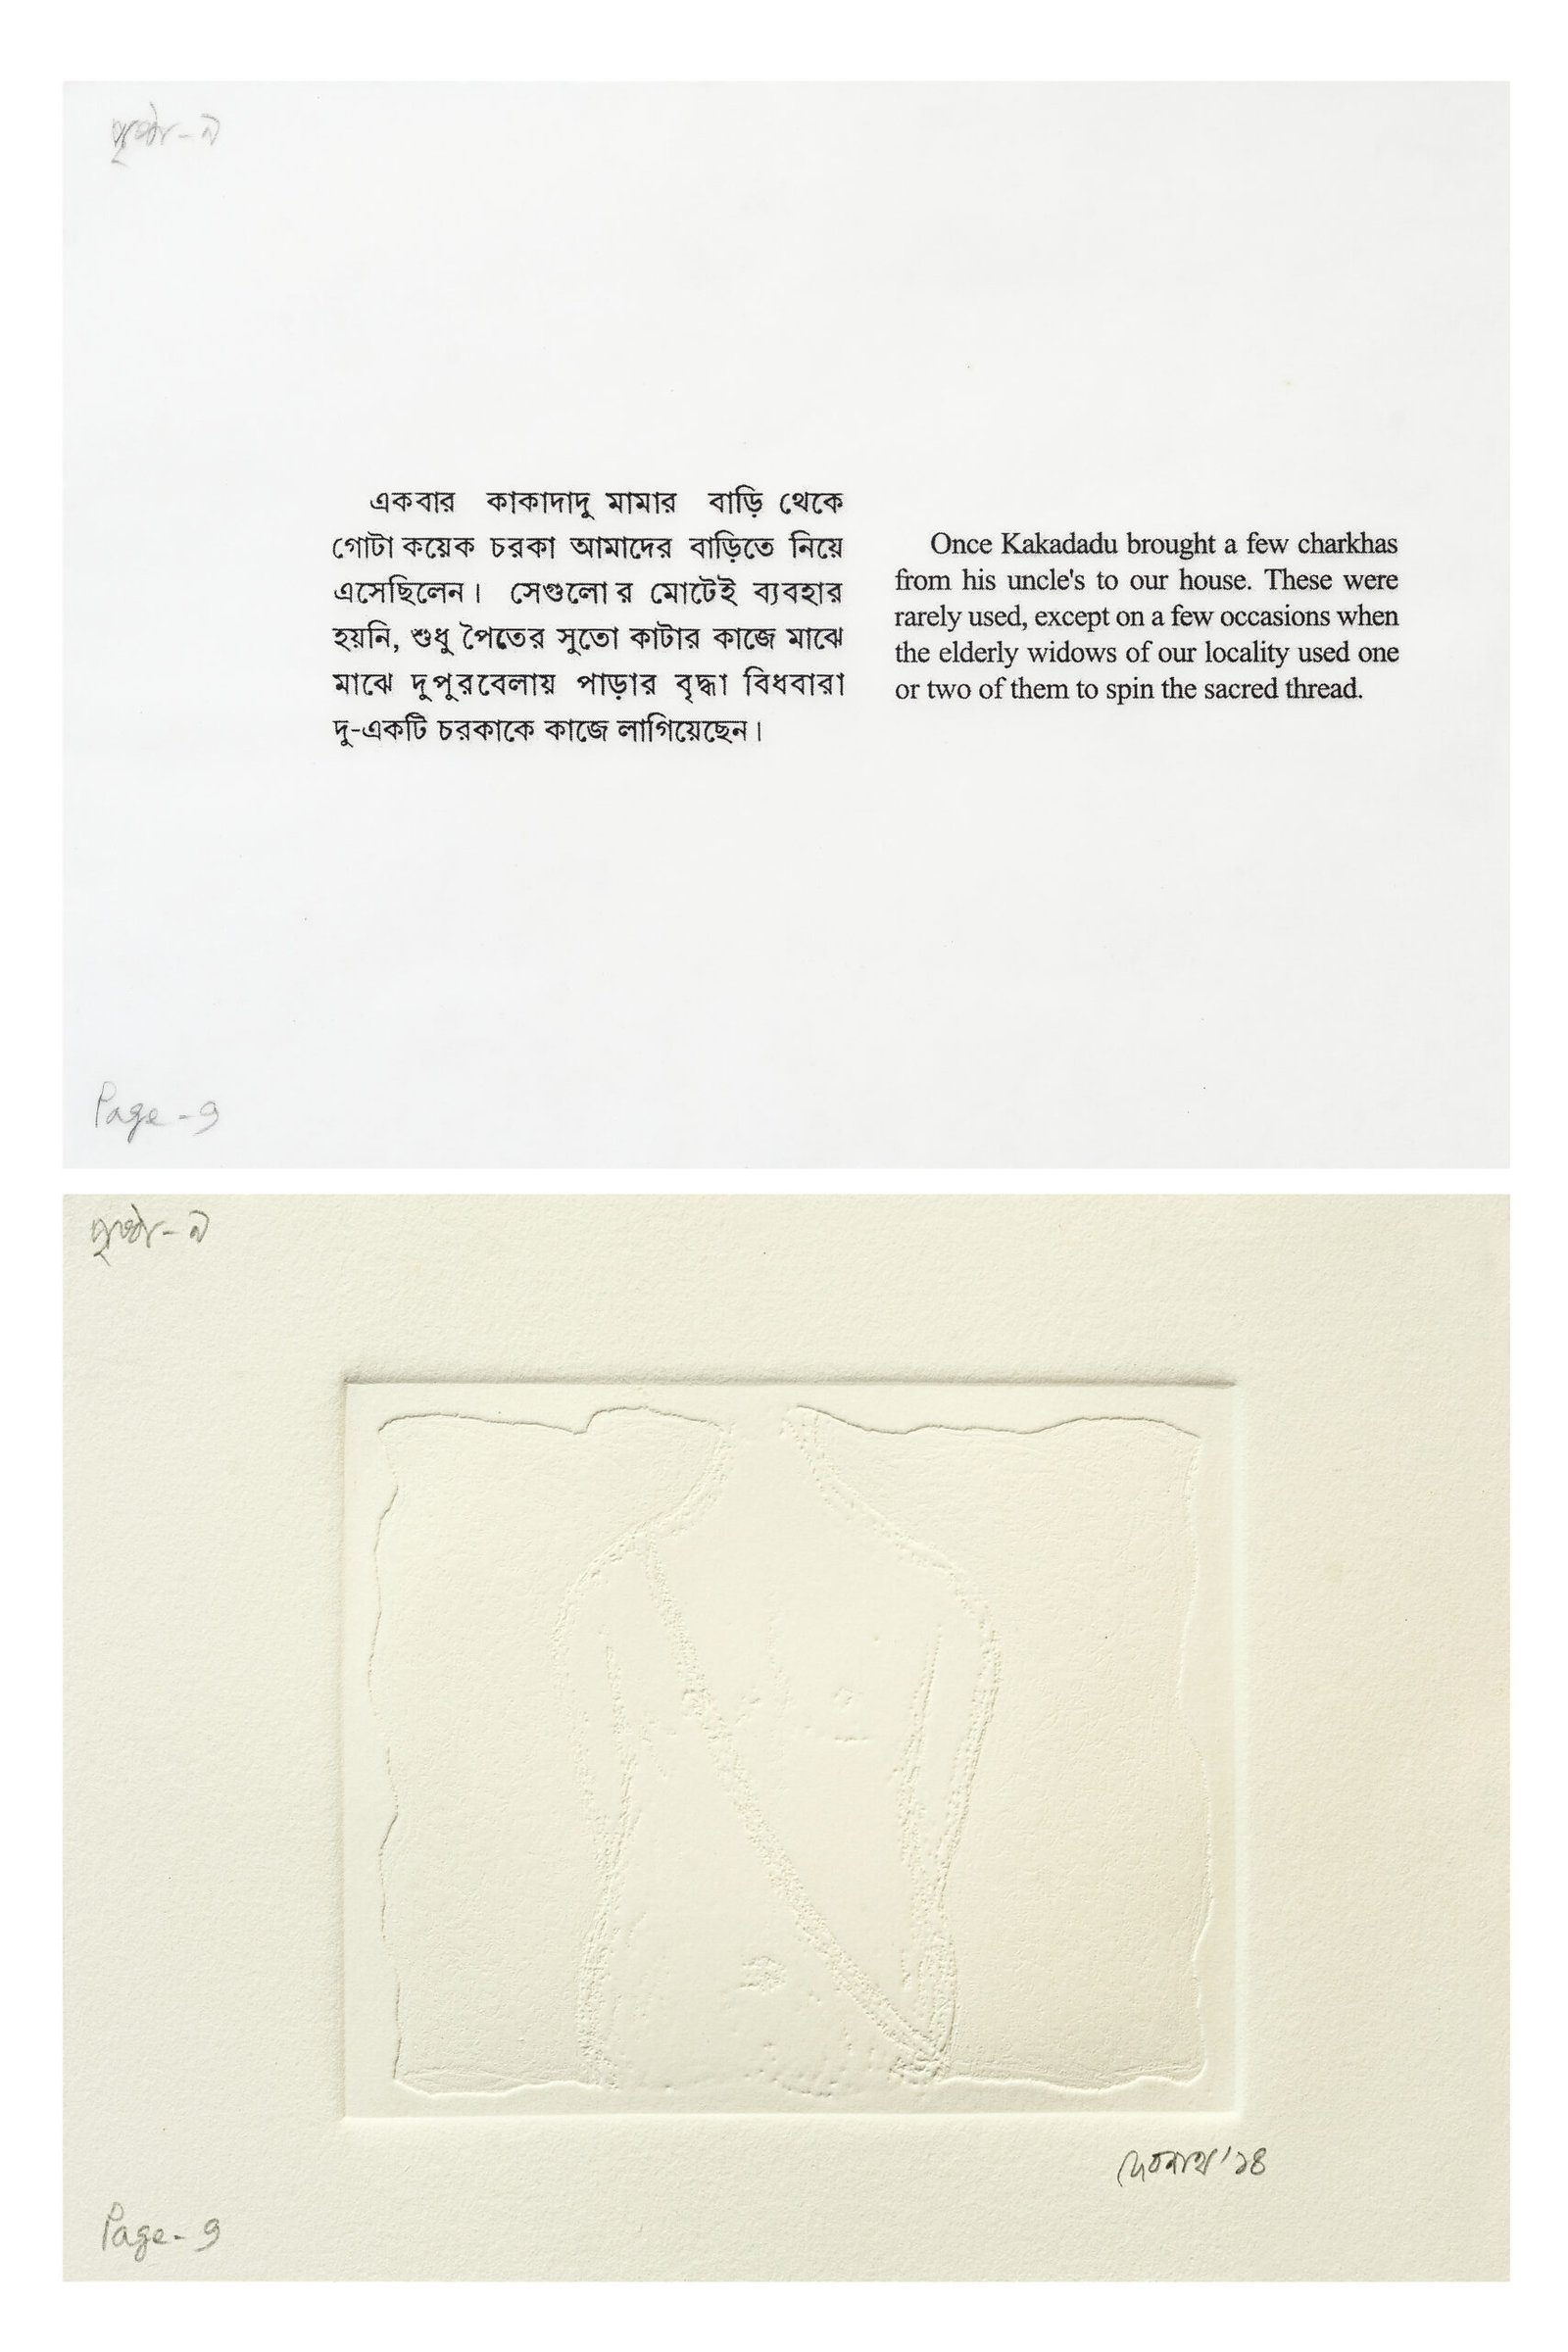 পৃষ্ঠা - ৯
একবার কাকাদাদু মামার বাড়ি থেকে
গোটা কয়েক চরকা আমাদের বাড়িতে নিয়ে
এসেছিলেন। সেগুলোর মোটেই ব্যবহার
হয়নি, শুধু পৈতের সুতো কাটার কাজে মাঝে
মাঝে দুপুরবেলায় পাড়ার বৃদ্ধা বিধবারা
দু-একটি চরকাকে কাজে লাগিয়েছেন।
Once Kakadadu brought a few charkhas
from his uncle's to our house. These were
rarely used, except on a few occasions when
the elderly widows of our locality used one
or two of them to spin the sacred thread.
Page - 9
পৃষ্ঠা - ৯
দেবনাথ '১৪
Page - 9